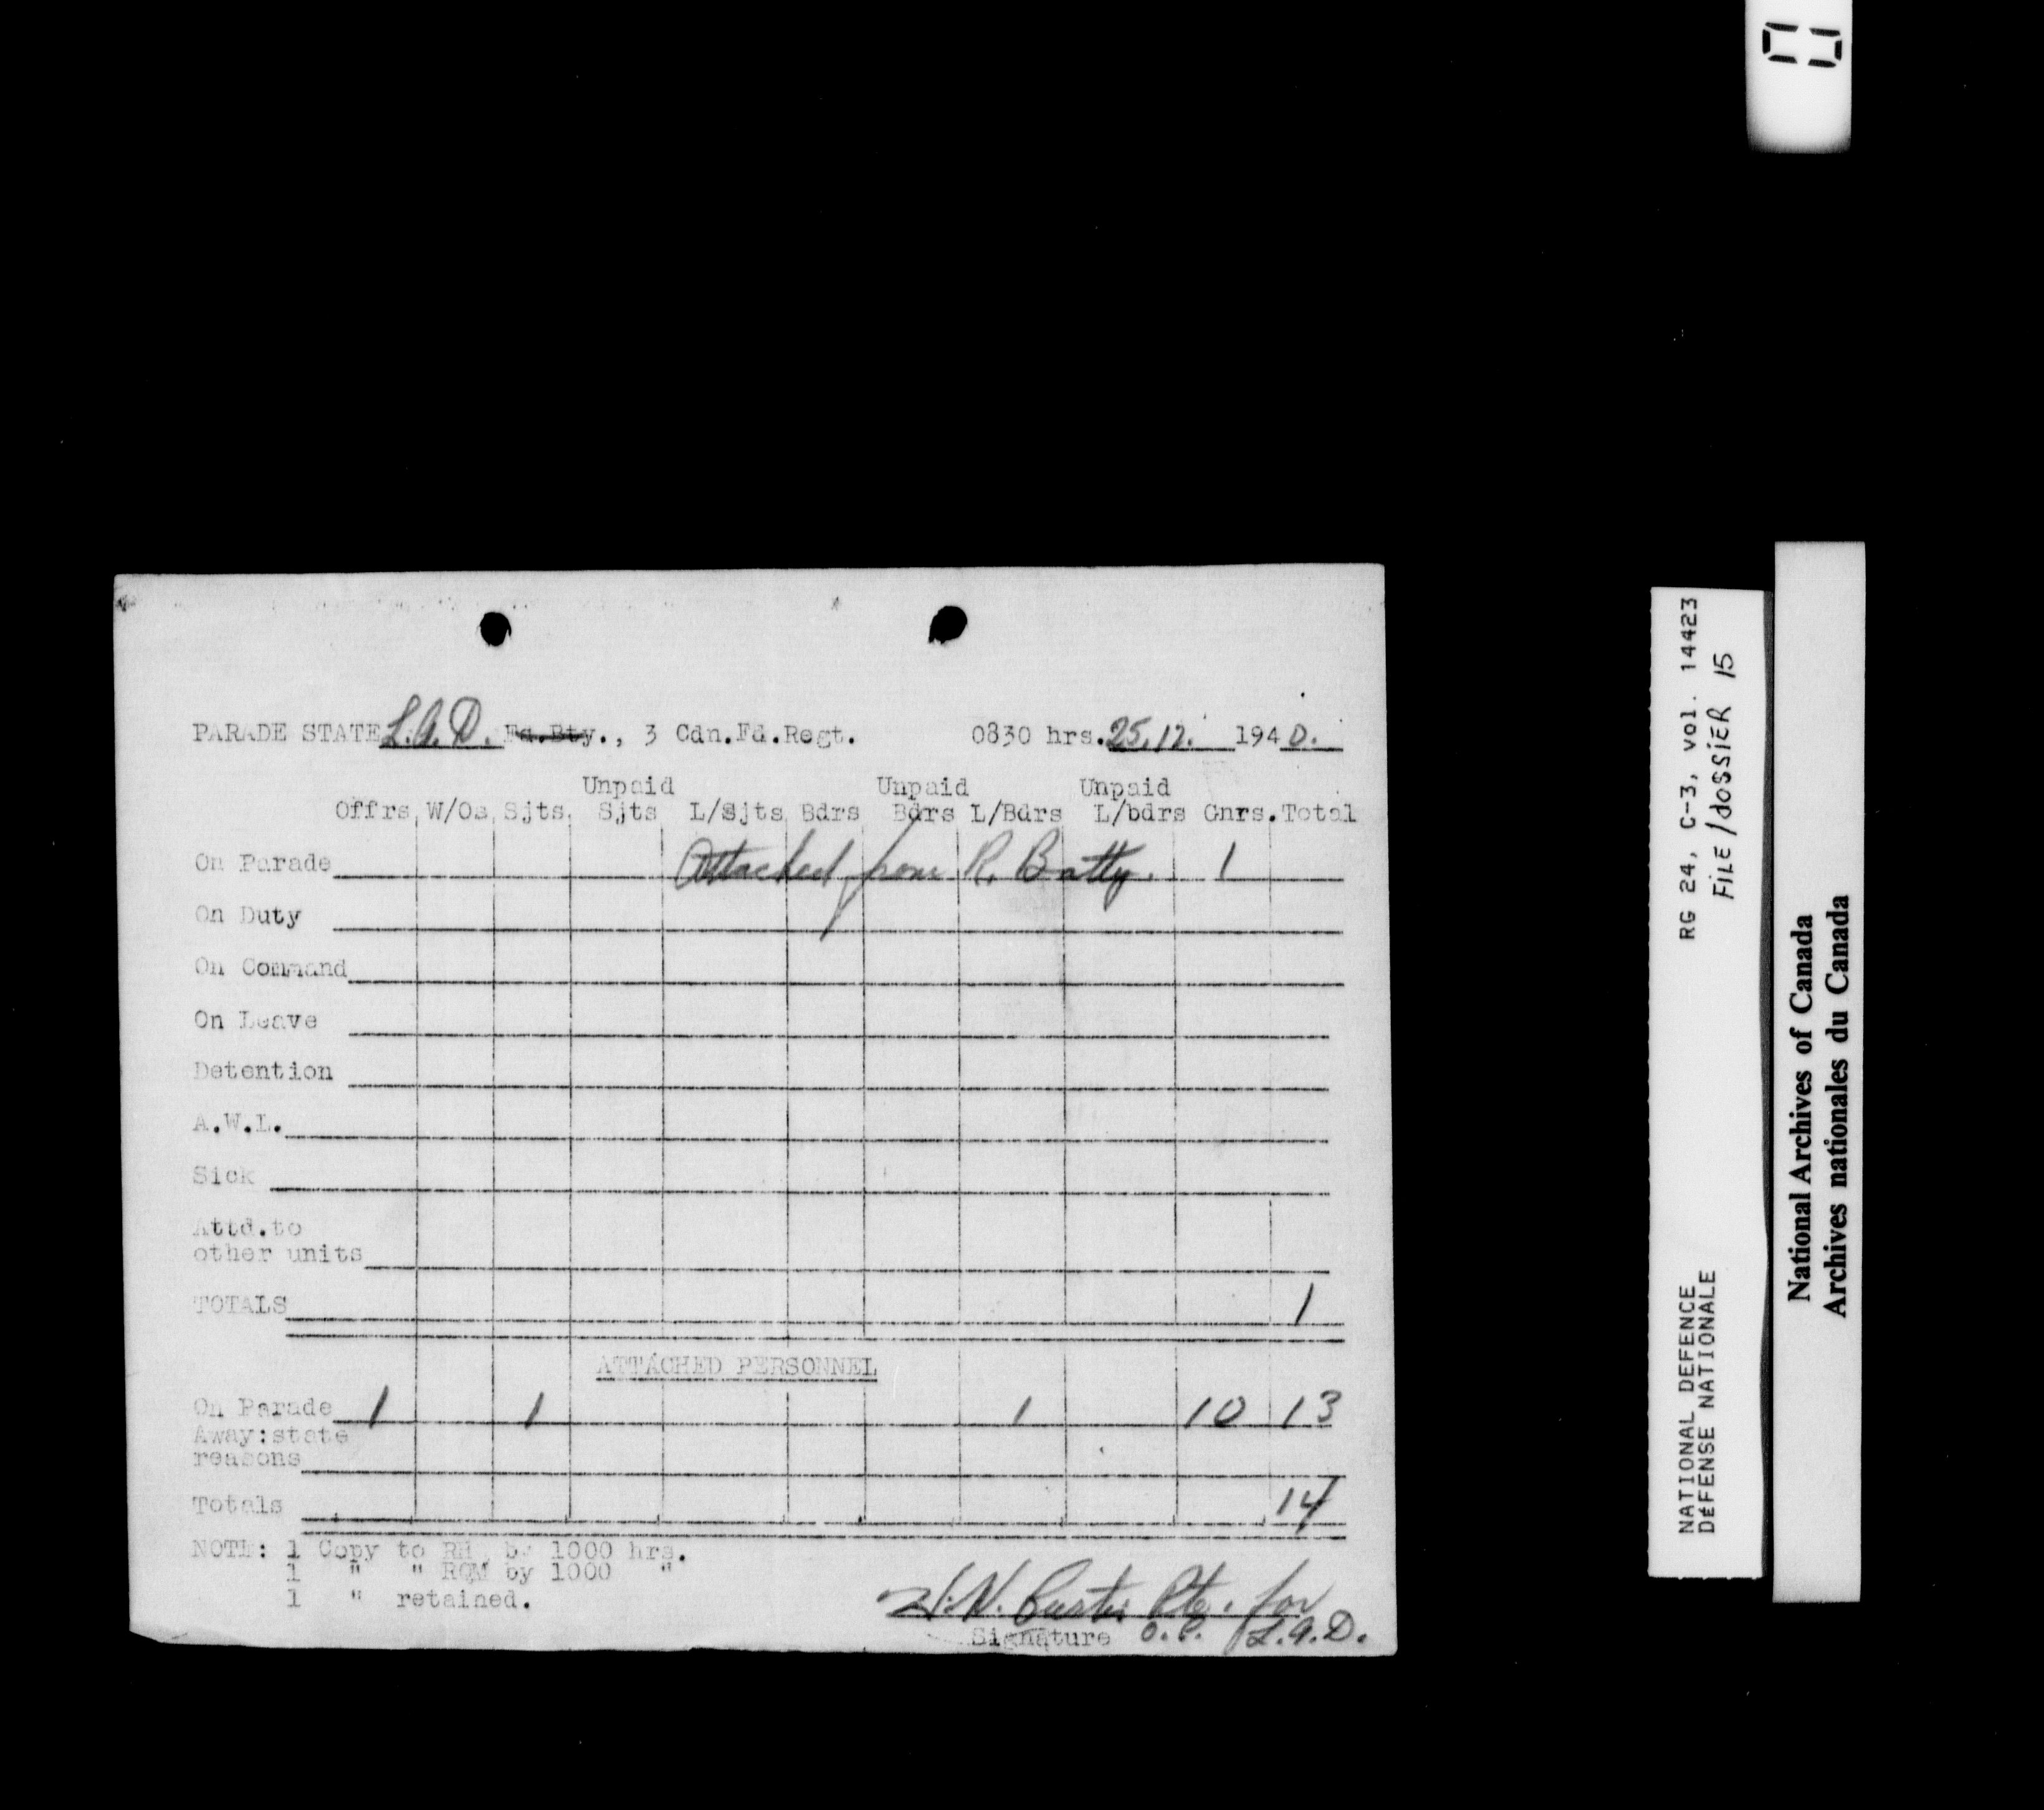 PARADE STATE L.A.D. Fd.Bty., 3 Cdn.Fd.Regt. 0830 hrs. 25.12. 1940.
Unpaid Unpaid Unpaid
Offrs W/Os Sjts. Sjts L/Sjts Bdrs Bdrs L/Bdrs L/bdrs Gnrs. Total
On Parade Attached from R. Batty. 1
On Duty
On Command
On Leave
Detention
A.W.L.
Sick
Attd.to
other units
TOTALS 1
ATTACHED PERSONNEL
On Parade 1 1 1 10 13
Away:state
reasons
Totals 14
NOTE: 1 Copy to RH by 1000 hrs.
1 " " RQM by 1000 "
1 " retained.
Pte. for
Signature O.C. L.A.D.
RG 24, C-3, vol. 14423
FILE/dOSSiER 15
NATIONAL DEFENCE
DéFENSE NATIONALE
National Archives of Canada
Archives nationales du Canada